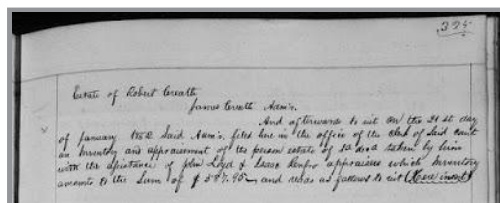 325
Estate of Robert Creath
James Creath Adm'r.
And afterwards to wit on the 21st day
of January 1852 Said Adm'r. filed here in the office of the Clerk of Said Court
an Inventory and appraisement of the person estate of sd decd taken by him
with the assistance of John Loyd & Isaac Renfro appraisers which Inventory
amounts to the Sum of $587.95 and reads as follows to wit (Here insert)